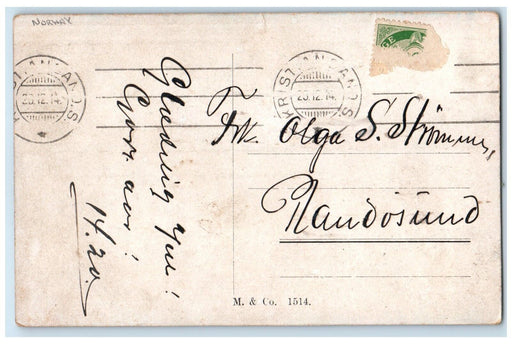 NORWAY
KRISTIANSAND.S.
23.12.14
KRISTIANSAND.S
23.12.14
Glædelig Jul!
Frk. Olga S. Strömme,
Randösund
M. & Co. 1514.